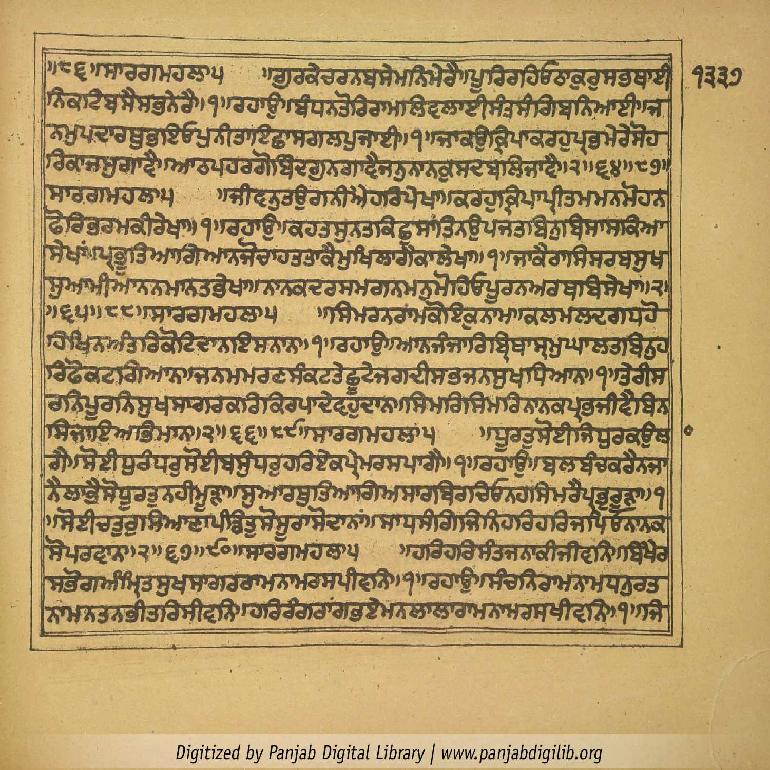 ॥੮੬॥ਸਾਰਗਮਹਲਾ੫ ॥ਗੁਰਕੇਚਰਨਬਸੇਮਨਿਮੇਰੈ॥ਪੂਰਿਰਹਿਓਠਾਕੁਰੁਸਭਥਾਈ
ਨਿਕਟਿਬਸੈਸਭਨੇਰੈ॥੧॥ਰਹਾਉ॥ਬੰਧਨਤੋਰਿਰਾਮਲਿਵਲਾਈਸੰਤਸੰਗਿਬਨਿਆਈ॥ਜ
ਨਮੁਪਦਾਰਥੁਭਇਓਪੁਨੀਤਾਇਛਾਸਗਲਪੁਜਾਈ॥੧॥ਜਾਕਉਕ੍ਰਿਪਾਕਰਹੁਪ੍ਰਭਮੇਰੇਸੋਹ
ਰਿਕਾਜਸੁਗਾਵੈ॥ਆਠਪਹਰਗੋਬਿੰਦਗੁਨਗਾਵੈਜਨੁਨਾਨਕੁਸਦਬਲਿਜਾਵੈ॥੨॥੬੪॥੮੭॥
ਸਾਰਗਮਹਲਾ੫ ॥ਜੀਵਨੁਤਉਗਨੀਐਹਰਿਪੇਖਾ॥ਕਰਹੁਕ੍ਰਿਪਾਪ੍ਰੀਤਮਮਨਮੋਹਨ
ਫੋਰਿਭਰਮਕੀਰੇਖਾ॥੧॥ਰਹਾਉ॥ਕਹਤਸੁਨਤਕਿਛੁਸਾਂਤਿਨਉਪਜਤਬਿਨੁਬਿਸਾਸਕਿਆ
ਸੇਖਾਂ॥ਪ੍ਰਭੂਤਿਆਗਿਆਨਜੋਚਾਹਤਤਾਕੈਮੁਖਿਲਾਗੈਕਾਲੇਖਾ॥੧॥ਜਾਕੈਰਾਸਿਸਰਬਸੁਖ
ਸੁਆਮੀਆਨਨਮਾਨਤਭੇਖਾ॥ਨਾਨਕਦਰਸਮਗਨਮਨੁਮੋਹਿਓਪੂਰਨਅਰਥਬਿਸੇਖਾ॥੨॥
॥੬੫॥੮੮॥ਸਾਰਗਮਹਲਾ੫ ॥ਸਿਮਰਨਰਾਮਕੋਇਕੁਨਾਮ॥ਕਲਮਲਦਗਧਹੋ
ਹਿਖਿਨਅੰਤਰਿਕੋਟਿਦਾਨਇਸਨਾਨ॥੧॥ਰਹਾਉ॥ਆਨਜੰਜਾਰਿਬ੍ਰਿਥਾਸ੍ਰਮੁਘਾਲਤਬਿਨੁਹ
ਰਿਫੋਕਟਗਿਆਨ॥ਜਨਮਮਰਣਸੰਕਟਤੇਛੂਟੇਜਗਦੀਸਭਜਨਸੁਖਧਿਆਨ॥੧॥ਤੇਰੀਸ
ਰਨਿਪੂਰਨਿਸੁਖਸਾਗਰਕਰਿਕਿਰਪਾਦੇਵਹੁਦਾਨ॥ਸਿਮਰਿਸਿਮਰਿਨਾਨਕਪ੍ਰਭਜੀਵੈਬਿਨ
ਸਿਜਾਇਅਭਿਮਾਨ॥੨॥੬੬॥੮੯॥ਸਾਰਗਮਹਲਾ੫ ॥ਧੂਰਤੁਸੋਈਜਿਧੁਰਕਉਲਾ
ਗੈ॥ਸੋਈਧੁਰੰਧਰੁਸੋਈਬਸੁੰਧਰੁਹਰਿਏਕਪ੍ਰੇਮਰਸਪਾਗੈ॥੧॥ਰਹਾਉ॥ਬਲਬੰਚਕਰੈਨਜਾ
ਨੈਲਾਭੈਸੋਧੂਰਤੁਨਹੀਮੂੜ੍ਹਾ॥ਸੁਆਰਥੁਤਿਆਗਿਅਸਾਰਥਿਰਚਿਓਨਹਸਿਮਰੈਪ੍ਰਭੁਰੂੜਾ॥੧
॥ਸੋਈਚਤੁਰੁਸਿਆਣਾਪੰਡਿਤੁਸੋਸੂਰਾਸੋਦਾਨਾਂ॥ਸਾਧਸੰਗਿਜਿਨਿਹਰਿਹਰਿਜਪਿਓਨਾਨਕ
ਸੋਪਰਵਾਨਾ॥੨॥੬੭॥੯੦॥ਸਾਰਗਮਹਲਾ੫ ॥ਹਰਿਹਰਿਸੰਤਜਨਾਕੀਜੀਵਨਿ॥ਬਿਖੈਰ
ਸਭੋਗਅੰਮ੍ਰਿਤਸੁਖਸਾਗਰਰਾਮਨਾਮਰਸਪੀਵਨਿ॥੧॥ਰਹਾਉ॥ਸੰਚਨਿਰਾਮਨਾਮਧਨੁਰਤ
ਨਾਮਨਤਨਭੀਤਰਿਸੀਵਨਿ॥ਹਰਿਰੰਗਰਾਂਗਭਏਮਨਲਾਲਾਰਾਮਨਾਮਰਸਖੀਵਨਿ॥੧॥ਜਿ
੧੩੩੭
Digitized by Panjab Digital Library | www.panjabdigilib.org